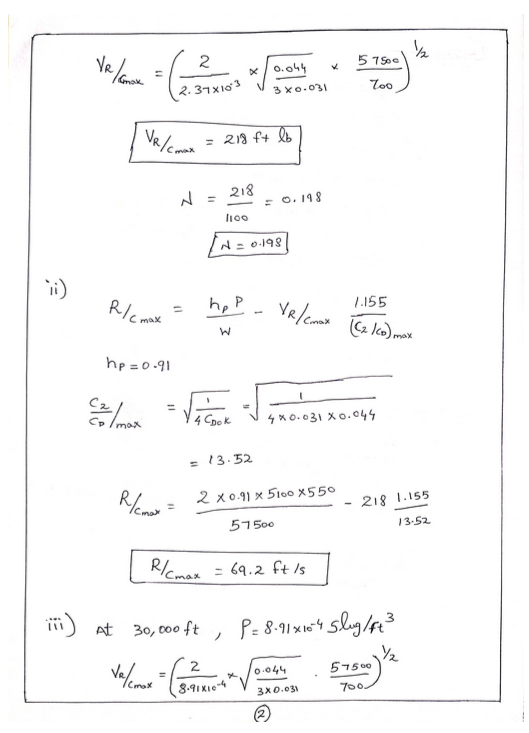 VR/Cmax = (2 / 2.37×10^-3 × √(0.044 / 3×0.031) × 57500 / 700)^1/2
VR/Cmax = 218 ft lb
N = 218 / 1100 = 0.198
N = 0.198
ii)
R/Cmax = hp P / W - VR/Cmax 1.155 / (C2/CD)max
hp = 0.91
C2/CD/max = √(1 / 4 CDO K) = √(1 / 4×0.031×0.044)
= 13.52
R/Cmax = 2×0.91×5100×550 / 57500 - 218 1.155 / 13.52
R/Cmax = 69.2 ft/s
iii) At 30,000 ft, P = 8.91×10^-4 Slug/ft^3
VR/Cmax = (2 / 8.91×10^-4 × √(0.044 / 3×0.031) . 57500 / 700)^1/2
2